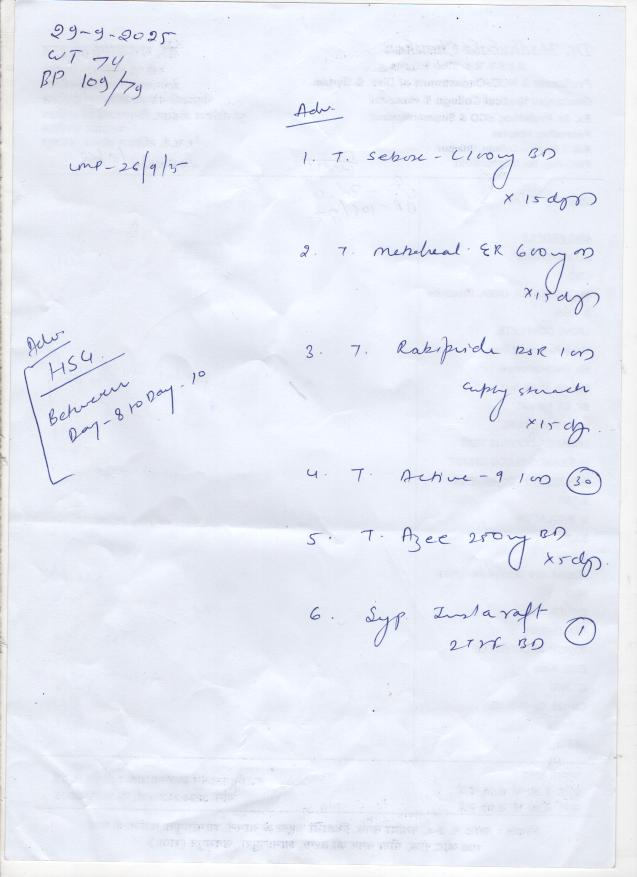 29-9-2025
WT 74
BP 109/79
LMP - 26/9/25
Adv.
HSG.
Between
Day - 8 to Day - 10
Adv.
1. T. 100mg BD
x 15 days
2. T. ER 600mg
x 15 days
3. T. Rabipride DSR 1 OD
empty stomach
x 15 days
4. T. Active - 9 1 OD 30
5. T. Azee 250mg BD
x 5 days
6. Syp. Instaraft
2 TSF BD 1